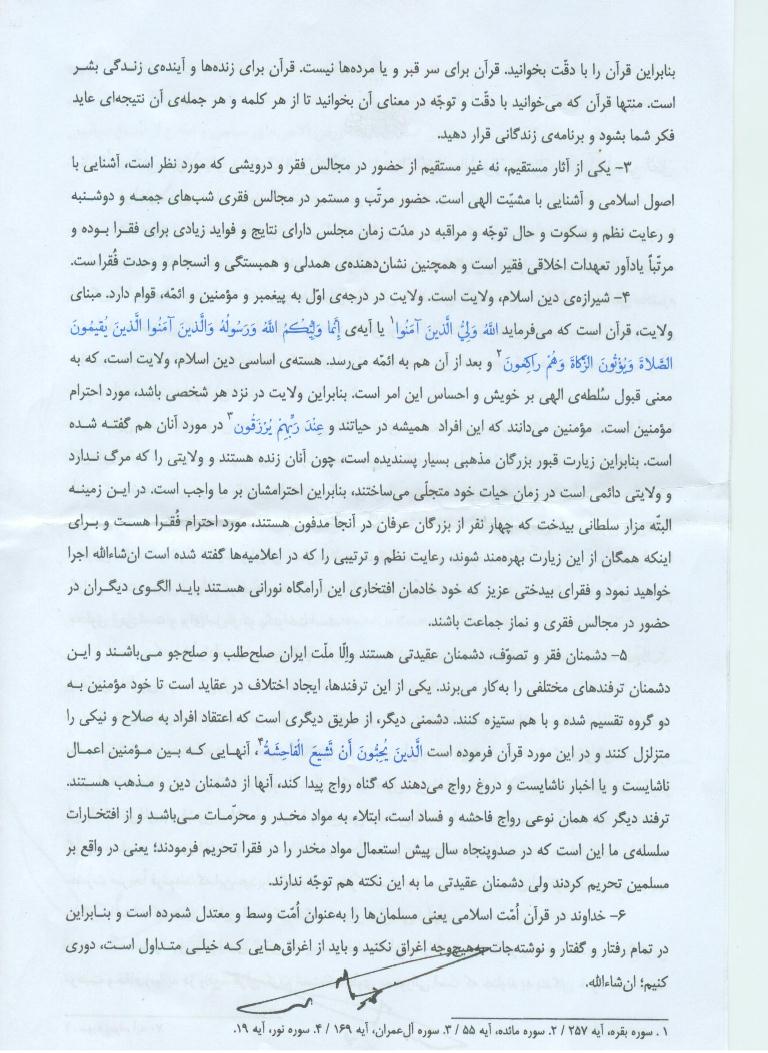 بنابراین قرآن را با دقّت بخوانید. قرآن برای سر قبر و یا مرده‌ها نیست. قرآن برای زنده‌ها و آینده‌ی زندگی بشر
است. منتها قرآن که می‌خوانید با دقّت و توجّه در معنای آن بخوانید تا از هر کلمه و هر جمله‌ی آن نتیجه‌ای عاید
فکر شما بشود و برنامه‌ی زندگانی قرار دهید.
۳- یکی از آثار مستقیم، نه غیر مستقیم از حضور در مجالس فقر و درویشی که مورد نظر است، آشنایی با
اصول اسلامی و آشنایی با مشیّت الهی است. حضور مرتّب و مستمر در مجالس فقری شب‌های جمعه و دوشنبه
و رعایت نظم و سکوت و حال توجّه و مراقبه در مدّت زمان مجلس دارای نتایج و فواید زیادی برای فقرا بوده و
مرتّباً یادآور تعهدات اخلاقی فقیر است و همچنین نشان‌دهنده‌ی همدلی و همبستگی و انسجام و وحدت فُقرا ست.
۴- شیرازه‌ی دین اسلام، ولایت است. ولایت در درجه‌ی اوّل به پیغمبر و مؤمنین و ائمّه، قوام دارد. مبنای
ولایت، قرآن است که می‌فرماید اللهُ وَلِیُّ الَّذینَ آمَنُوا۱ یا آیه‌ی إِنَّما وَلِیُّکُمُ اللهُ وَرَسُولُهُ وَالَّذینَ آمَنُوا الَّذینَ یُقیمُونَ
الصَّلاةَ وَیُؤْتُونَ الزَّکاةَ وَهُمْ راکِعونَ۲ و بعد از آن هم به ائمّه می‌رسد. هسته‌ی اساسی دین اسلام، ولایت است، که به
معنی قبول سُلطه‌ی الهی بر خویش و احساس این امر است. بنابراین ولایت در نزد هر شخصی باشد، مورد احترام
مؤمنین است. مؤمنین می‌دانند که این افراد همیشه در حیاتند و عِنْدَ رَبِّهِمْ یُرْزَقُون۳ در مورد آنان هم گفته شده
است. بنابراین زیارت قبور بزرگان مذهبی بسیار پسندیده است، چون آنان زنده هستند و ولایتی را که مرگ ندارد
و ولایتی دائمی است در زمان حیات خود متجلّی می‌ساختند، بنابراین احترامشان بر ما واجب است. در این زمینه
البتّه مزار سلطانی بیدخت که چهار نفر از بزرگان عرفان در آنجا مدفون هستند، مورد احترام فُقرا هست و برای
اینکه همگان از این زیارت بهره‌مند شوند، رعایت نظم و ترتیبی را که در اعلامیه‌ها گفته شده است ان‌شاءالله اجرا
خواهید نمود و فقرای بیدختی عزیز که خود خادمان افتخاری این آرامگاه نورانی هستند باید الگوی دیگران در
حضور در مجالس فقری و نماز جماعت باشند.
۵- دشمنان فقر و تصوّف، دشمنان عقیدتی هستند والّا ملّت ایران صلح‌طلب و صلح‌جو می‌باشند و این
دشمنان ترفندهای مختلفی را به‌کار می‌برند. یکی از این ترفندها، ایجاد اختلاف در عقاید است تا خود مؤمنین به
دو گروه تقسیم شده و با هم ستیزه کنند. دشمنی دیگر، از طریق دیگری است که اعتقاد افراد به صلاح و نیکی را
متزلزل کنند و در این مورد قرآن فرموده است الَّذینَ یُحِبُّونَ أَنْ تَشیعَ الْفاحِشَةُ۴، آنهایی که بین مؤمنین اعمال
ناشایست و یا اخبار ناشایست و دروغ رواج می‌دهند که گناه رواج پیدا کند، آنها از دشمنان دین و مذهب هستند.
ترفند دیگر که همان نوعی رواج فاحشه و فساد است، ابتلاء به مواد مخدر و محرّمات می‌باشد و از افتخارات
سلسله‌ی ما این است که در صدوپنجاه سال پیش استعمال مواد مخدر را در فقرا تحریم فرمودند؛ یعنی در واقع بر
مسلمین تحریم کردند ولی دشمنان عقیدتی ما به این نکته هم توجّه ندارند.
۶- خداوند در قرآن اُمّت اسلامی یعنی مسلمان‌ها را به‌عنوان اُمّت وسط و معتدل شمرده است و بنابراین
در تمام رفتار و گفتار و نوشته‌جات به‌هیچ‌وجه اغراق نکنید و باید از اغراق‌هایی که خیلی متداول است، دوری
کنیم؛ ان‌شاءالله.
۱. سوره بقره، آیه ۲۵۷ / ۲. سوره مائده، آیه ۵۵ / ۳. سوره آل‌عمران، آیه ۱۶۹ / ۴. سوره نور، آیه ۱۹.